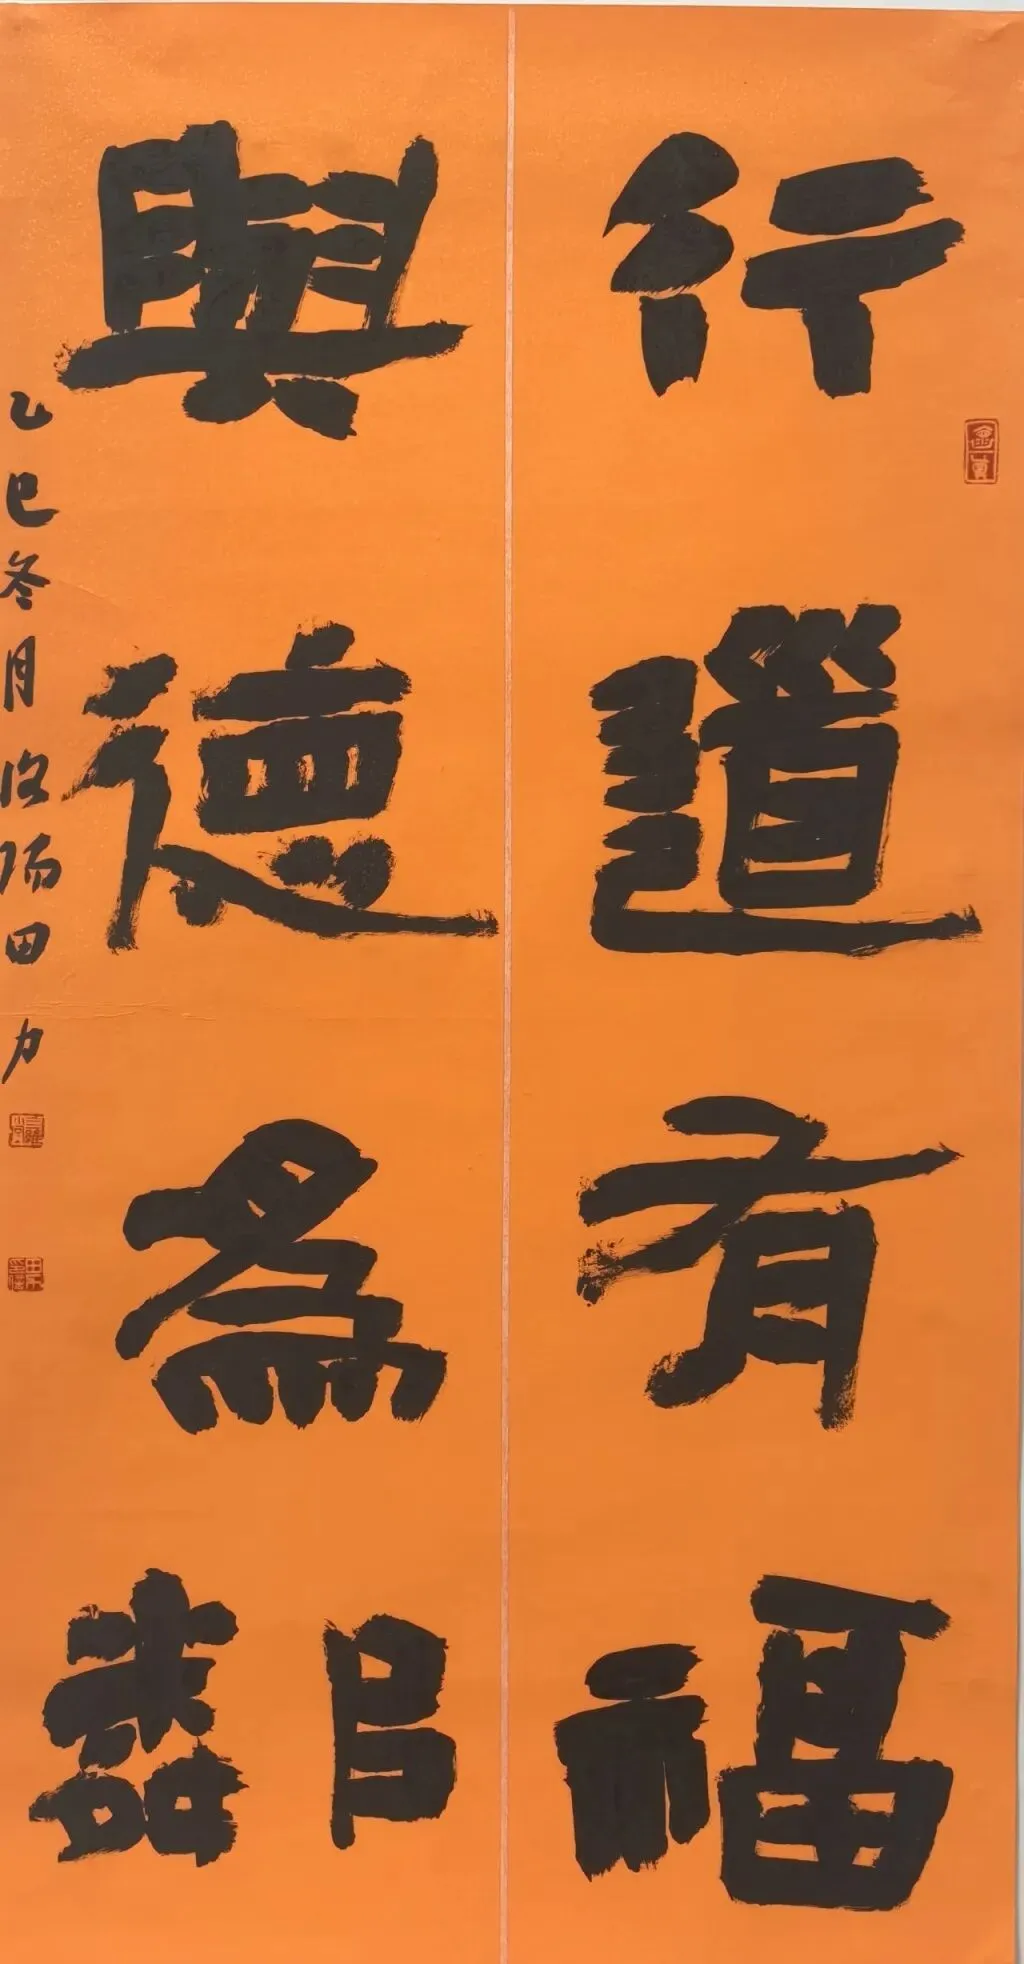 行道有福
與德為鄰
乙巳冬月洛陽田力